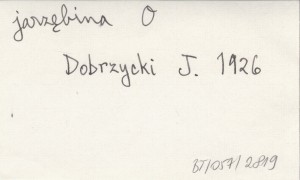 jarzębina O
Dobrzycki J. 1926
BJ/057/2819